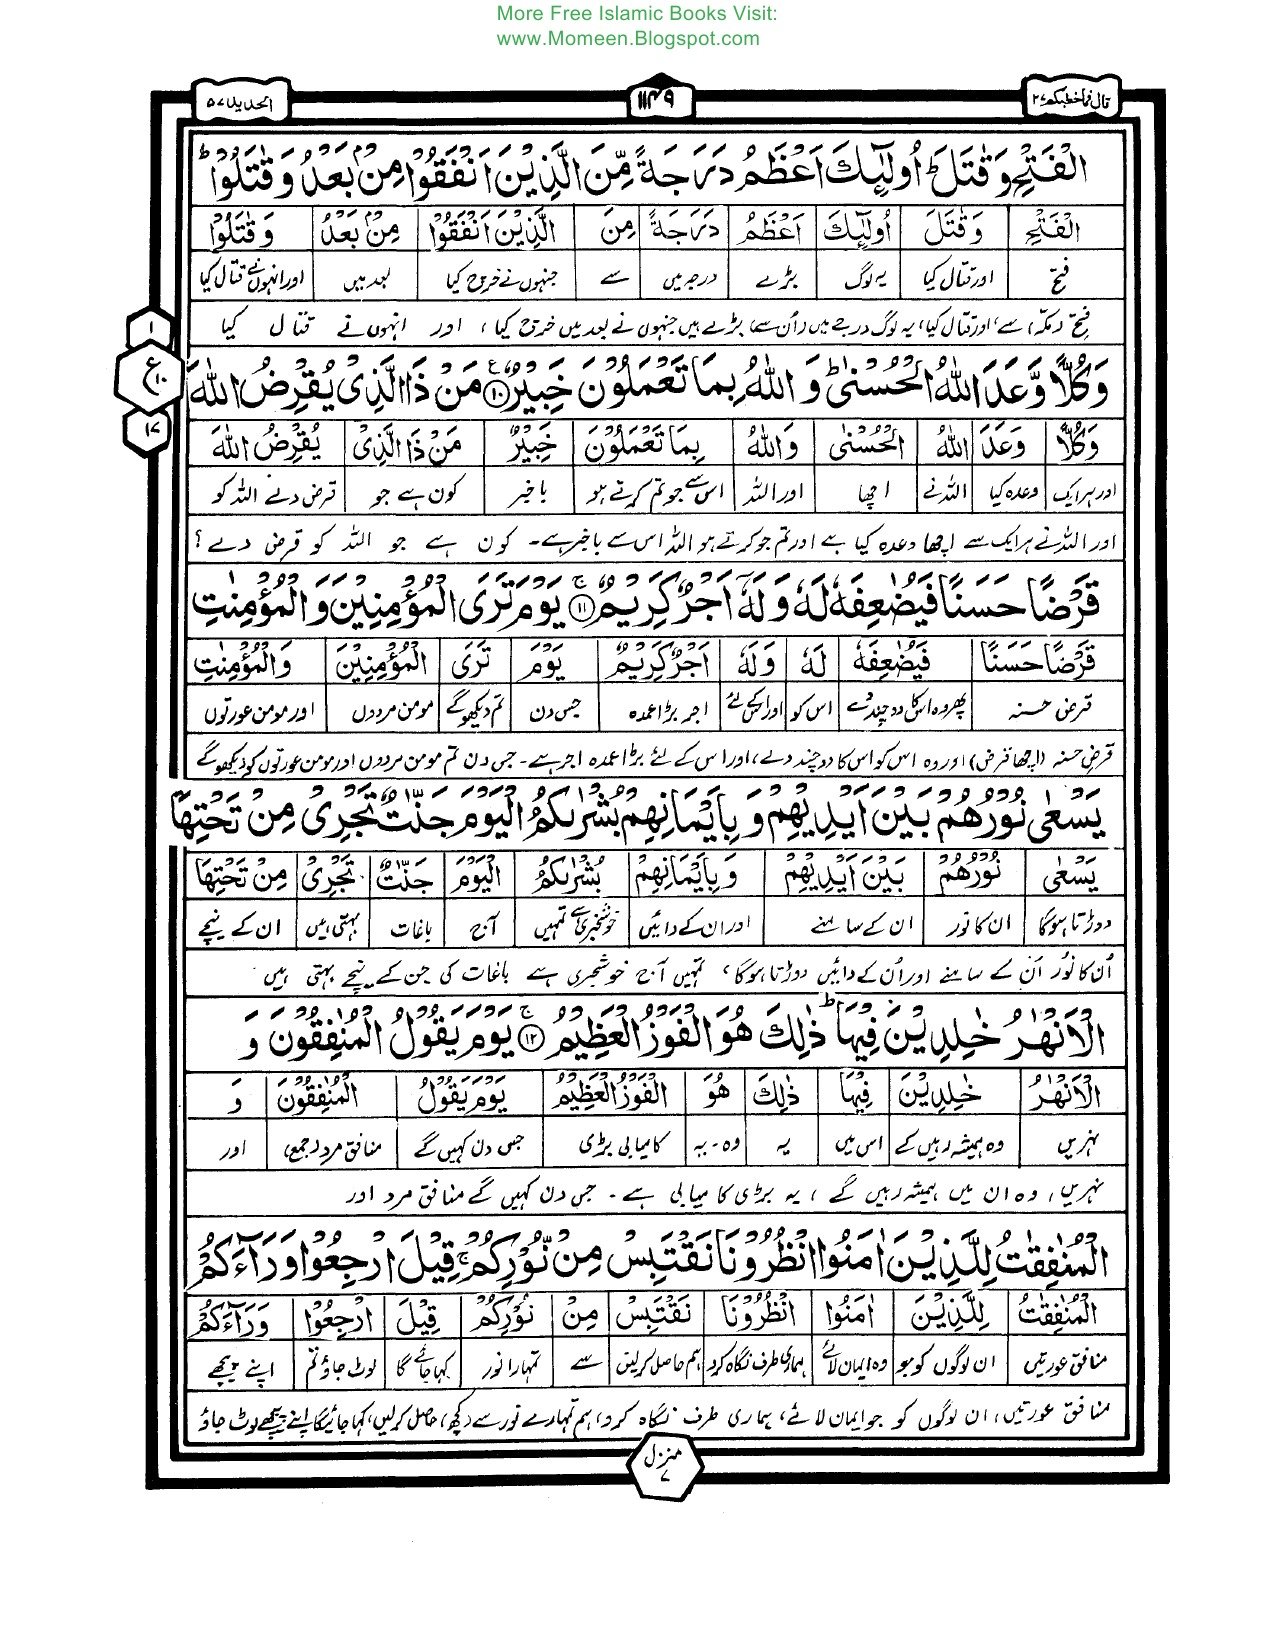 More Free Islamic Books Visit:
www.Momeen.Blogspot.com
قال فما خطبكم ۲۷
۱۱۴۹
الحدید ۵۷
الْفَتْحِ وَقٰتَلَ ؕ اُولٰٓئِكَ اَعْظَمُ دَرَجَةً مِّنَ الَّذِيْنَ اَنْفَقُوْا مِنْۢ بَعْدُ وَقٰتَلُوْا ؕ
الْفَتْحِ وَقٰتَلَ اُولٰٓئِكَ اَعْظَمُ دَرَجَةً مِنَ الَّذِيْنَ اَنْفَقُوْا مِنْۢ بَعْدُ وَقٰتَلُوْا
فتح اور قتال کیا یہ لوگ بڑے درجہ میں سے جنہوں نے خرچ کیا بعد میں اور انہوں نے قتال کیا
فتح (مکہ) سے اور قتال کیا، یہ لوگ درجے میں (اُن سے) بڑے ہیں جنہوں نے بعد میں خرچ کیا، اور انہوں نے قتال کیا
۱
ع
۱۰
۱۷
وَكُلًّا وَّعَدَ اللّٰهُ الْحُسْنٰى ؕ وَاللّٰهُ بِمَا تَعْمَلُوْنَ خَبِيْرٌ ۱۰ مَنْ ذَا الَّذِيْ يُقْرِضُ اللّٰهَ
وَكُلًّا وَعَدَ اللّٰهُ الْحُسْنٰى وَاللّٰهُ بِمَا تَعْمَلُوْنَ خَبِيْرٌ مَنْ ذَا الَّذِيْ يُقْرِضُ اللّٰهَ
اور ہر ایک وعدہ کیا اللہ نے اچھا اور اللہ اس سے جو تم کرتے ہو باخبر کون ہے جو قرض دے اللہ کو
اور اللہ نے ہر ایک سے اچھا وعدہ کیا ہے اور تم جو کرتے ہو اللہ اس سے باخبر ہے۔ کون ہے جو اللہ کو قرض دے؟
قَرْضًا حَسَنًا فَيُضٰعِفَهٗ لَهٗ وَلَهٗۤ اَجْرٌ كَرِيْمٌ ۚ ۱۱ يَوْمَ تَرَى الْمُؤْمِنِيْنَ وَالْمُؤْمِنٰتِ
قَرْضًا حَسَنًا فَيُضٰعِفَهٗ لَهٗ وَلَهٗ اَجْرٌ كَرِيْمٌ يَوْمَ تَرَى الْمُؤْمِنِيْنَ وَالْمُؤْمِنٰتِ
قرض حسنہ پھر وہ اس کا دوچند دے اس کو اور اس کے لئے اجر بڑا عمدہ جس دن تم دیکھو گے مومن مردوں اور مومن عورتوں
قرض حسنہ (اچھا قرض) اور وہ اس کو اس کا دوچند دے، اور اس کے لئے بڑا عمدہ اجر ہے۔ جس دن تم مومن مردوں اور مومن عورتوں کو دیکھو گے
يَسْعٰى نُوْرُهُمْ بَيْنَ اَيْدِيْهِمْ وَبِاَيْمَانِهِمْ بُشْرٰىكُمُ الْيَوْمَ جَنّٰتٌ تَجْرِيْ مِنْ تَحْتِهَا
يَسْعٰى نُوْرُهُمْ بَيْنَ اَيْدِيْهِمْ وَبِاَيْمَانِهِمْ بُشْرٰىكُمُ الْيَوْمَ جَنّٰتٌ تَجْرِيْ مِنْ تَحْتِهَا
دوڑتا ہوگا ان کا نور ان کے سامنے اور ان کے دائیں خوشخبری ہے تمہیں آج باغات بہتی ہیں ان کے نیچے
اُن کا نُور اُن کے سامنے اور اُن کے دائیں دوڑتا ہوگا، تمہیں آج خوشخبری ہے باغات کی جن کے نیچے بہتی ہیں
الْاَنْهٰرُ خٰلِدِيْنَ فِيْهَا ؕ ذٰلِكَ هُوَ الْفَوْزُ الْعَظِيْمُ ۚ ۱۲ يَوْمَ يَقُوْلُ الْمُنٰفِقُوْنَ وَ
الْاَنْهٰرُ خٰلِدِيْنَ فِيْهَا ذٰلِكَ هُوَ الْفَوْزُ الْعَظِيْمُ يَوْمَ يَقُوْلُ الْمُنٰفِقُوْنَ وَ
نہریں وہ ہمیشہ رہیں گے اس میں یہ وہ۔یہ کامیابی بڑی جس دن کہیں گے منافق مرد (جمع) اور
نہریں، وہ ان میں ہمیشہ رہیں گے، یہ بڑی کامیابی ہے۔ جس دن کہیں گے منافق مرد اور
الْمُنٰفِقٰتُ لِلَّذِيْنَ اٰمَنُوا انْظُرُوْنَا نَقْتَبِسْ مِنْ نُّوْرِكُمْ ۚ قِيْلَ ارْجِعُوْا وَرَآءَكُمْ
الْمُنٰفِقٰتُ لِلَّذِيْنَ اٰمَنُوا انْظُرُوْنَا نَقْتَبِسْ مِنْ نُوْرِكُمْ قِيْلَ ارْجِعُوْا وَرَآءَكُمْ
منافق عورتیں ان لوگوں کو جو وہ ایمان لائے ہماری طرف نگاہ کرو ہم حاصل کرلیں سے تمہارا نور کہا جائے گا لوٹ جاؤ تم اپنے پیچھے
منافق عورتیں، ان لوگوں کو جو ایمان لائے، ہماری طرف نگاہ کرو، ہم تمہارے نور سے (کچھ) حاصل کرلیں، کہا جائیگا اپنے پیچھے لوٹ جاؤ
منزل
۷